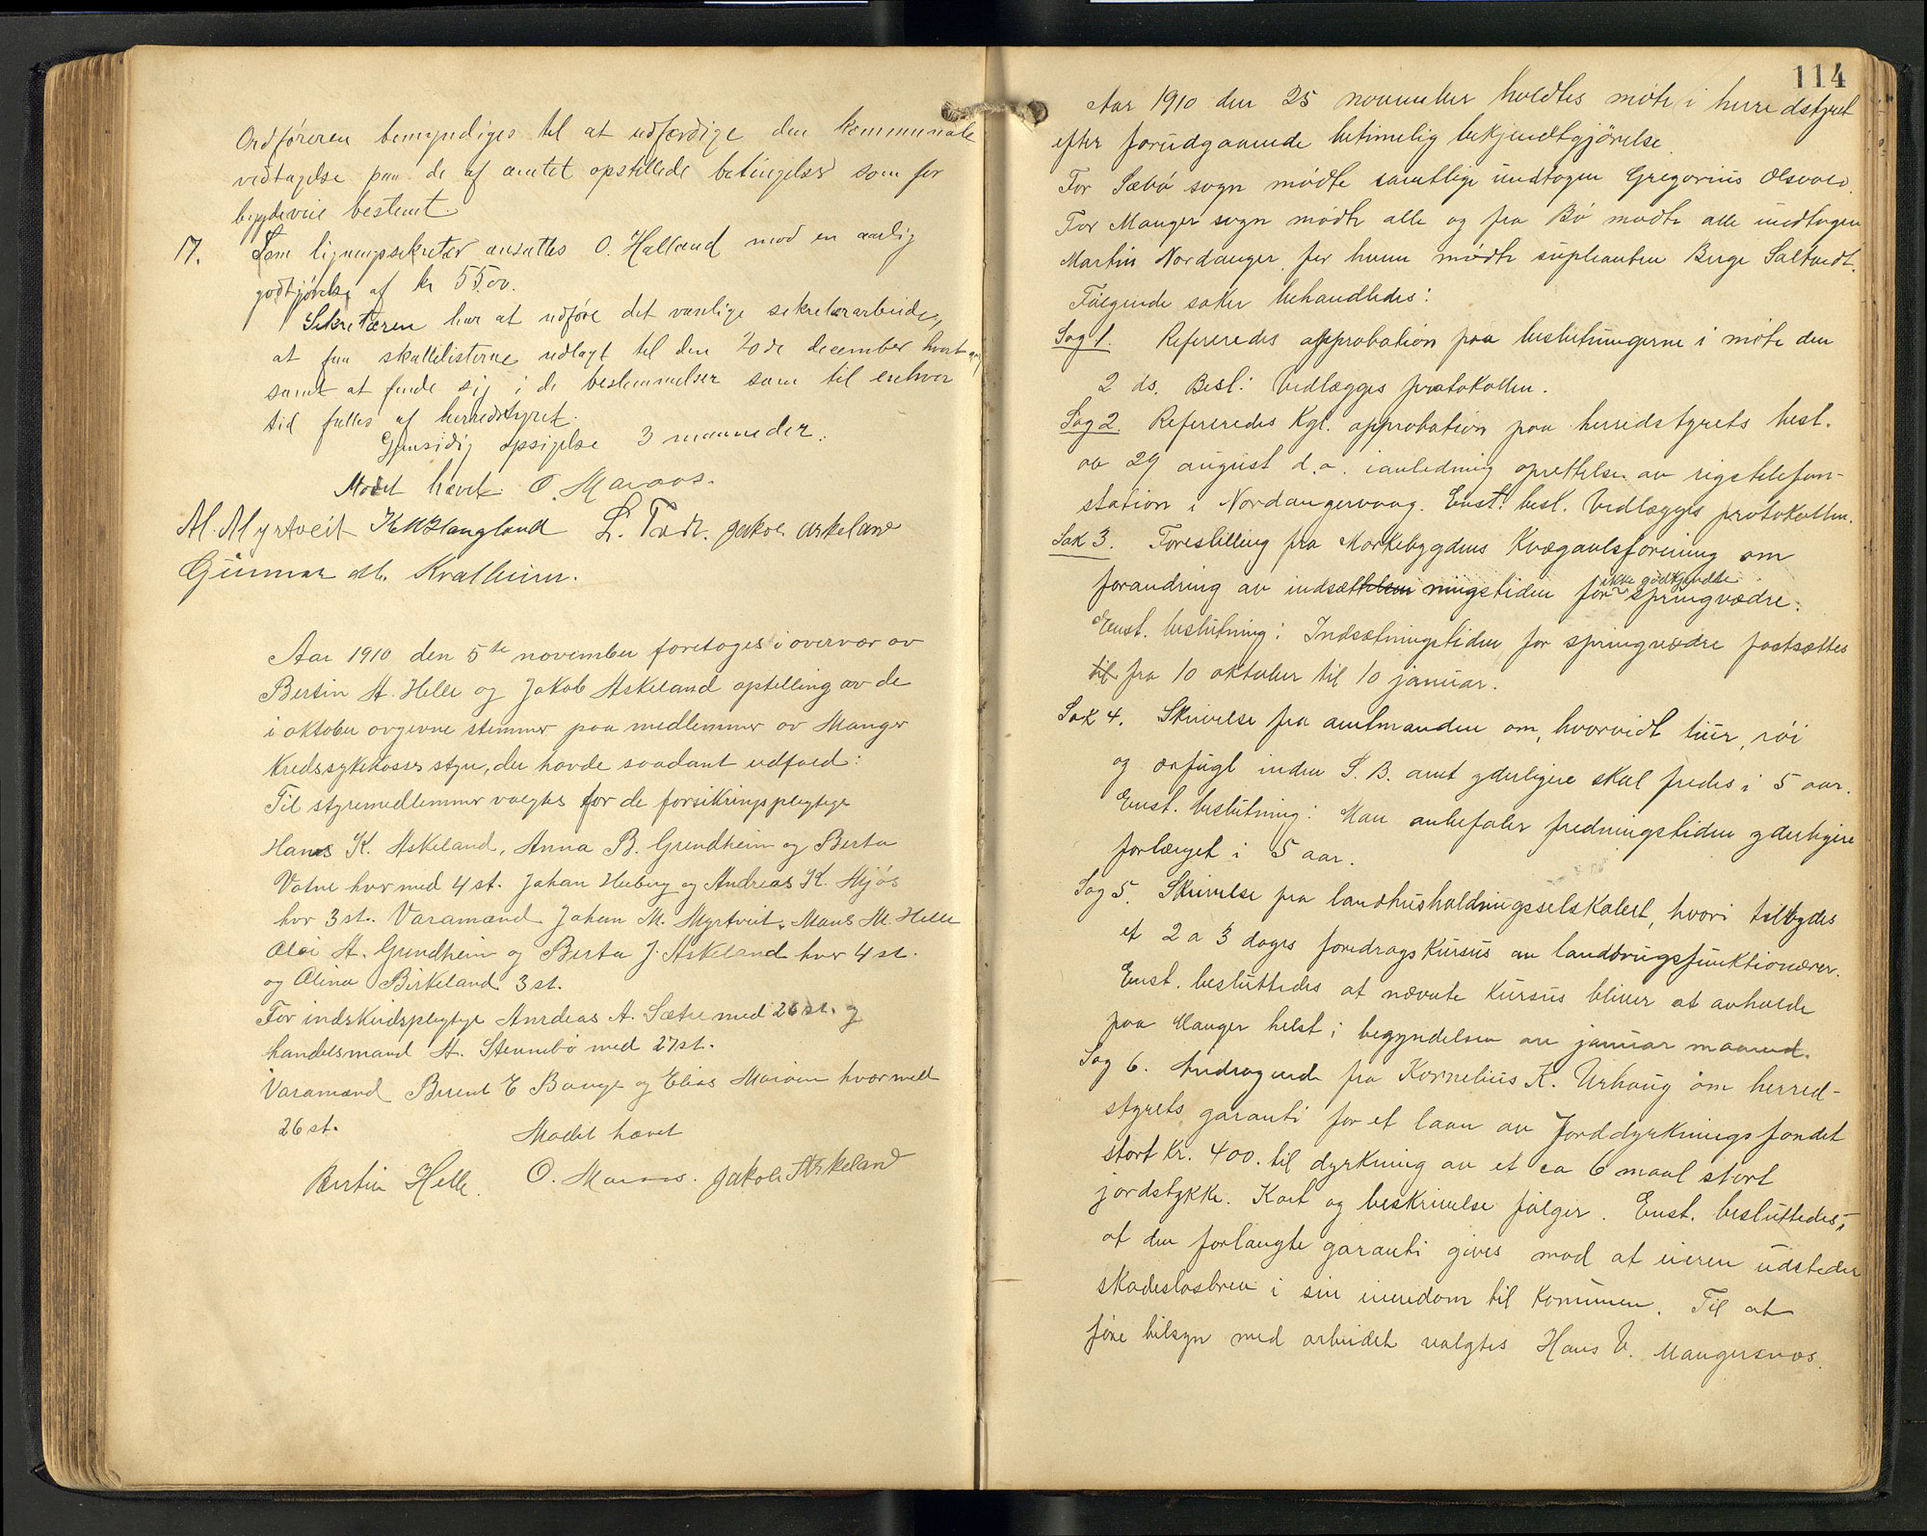 Ordføreren bemyndiges til at udfærdige den kommunale
vedtagelse paa de af amtet opstillede betingelser som for
bygdeveie bestemt.
17. Som ligningssekretær ansattes O. Halland mod en aarlig
godtgjørelse af kr 55.00.
Sekretæren har at udføre det vanlige sekretærarbeide,
at faa skattelisterne udlagt til den 20de december hvert aar
samt at finde sig i de bestemmelser som til enhver
tid fattes af herredstyret.
Gjensidig opsigelse 3 maaneder.
Mødet hævet O. Marøos.
M. Myrtveit K. M. Haugland L. Toft. Jakob Askeland
Gunnar M. Kvalheim.
Aar 1910 den 5te november foretoges i overvær av
Bertin A. Helle og Jakob Askeland optelling av de
i oktober avgivne stemmer paa medlemmer av Manger
Kredssykekasses styre, der havde saadant udfald:
Til styremedlemmer valgtes for de forsikringspligtige
Hans K. Askeland, Anna B. Grendheim og Berta
Vatne hver med 4 st. Johan Heiberg og Andreas K. Mjøs
hver 3 st. Varamænd Johan M. Myrtveit, Mans M. Helle
Olai A. Grundheim og Berta J. Askeland hver 4 st.
og Olina Birkeland 3 st.
For indskudspligtige Andreas A. Sætre med 26 st. og
handelsmand A. Stennebø med 27 st.
Varamænd Berent E Bauge og Elias Marøen hver med
26 st.
Mødet hævet
Bertin Helle. O. Marøos. Jakob Askeland
114
Aar 1910 den 25 november holdtes møte i herredstyret
efter forudgaaende betimelig bekjendtgjörelse.
For Sæbø sogn mødte samtlige undtagen Gregorius Olsvold.
For Manger sogn mødte alle og fra Bø mødte alle undtagen
Martin Nordanger, for hvem mødte supleanten Berge Saltvedt.
Følgende saker behandledes:
Sag 1. Refereredes approbation paa beslutningerne i møte den
2 ds. Besl: Vedlægges protokollen.
Sag 2. Refereredes Kgl. approbation paa herredstyrets besl.
av 29 august d.a. ianledning oprettelse av rigstelefon-
station i Nordangervaag. Enst. besl. Vedlægges protokollen.
Sak 3. Forestilling fra Morkebygdens Kvægavlsforening om
forandring av indsætningstiden for ikke godkjendte springvædre.
Enst. beslutning: Indsætningstiden for springvædre fastsættes
til fra 10 oktober til 10 januar.
Sak 4. Skrivelse fra amtmanden om, hvorvidt tiur, röi
og orfugl inden S. B. amt yderligere skal fredes i 5 aar.
Enst. beslutning: Man anbefaler fredningstiden yderligere
forlænget i 5 aar.
Sag 5. Skrivelse fra landhusholdningsselskabet, hvori tilbydes
et 2 a 3 dages foredragskursus av landbrugsfunktionærer.
Enst. besluttedes at nævnte kursus bliver at avholde
paa Manger helst i begyndelsen av januar maaned.
Sag 6. Andragende fra Kornelius K. Urhaug om herred-
styrets garanti for et laan av Jorddyrkningsfondet
stort Kr. 400. til dyrkning av et ca 6 maal stort
jordstykke. Kart og beskrivelse følger. Enst. besluttedes;
at den forlangte garanti gives mod at eieren udsteder
skadesløsbrev i sin eiendom til kommunen. Til at
føre tilsyn med arbeidet valgtes Hans V. Mangersnæs.